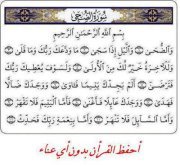 سُورَةُ الضُّحَى
بِسْمِ اللَّهِ الرَّحْمَٰنِ الرَّحِيمِ
وَالضُّحَىٰ وَاللَّيْلِ إِذَا سَجَىٰ مَا وَدَّعَكَ رَبُّكَ وَمَا قَلَىٰ
وَلَلْآخِرَةُ خَيْرٌ لَّكَ مِنَ الْأُولَىٰ وَلَسَوْفَ يُعْطِيكَ رَبُّكَ
فَتَرْضَىٰ أَلَمْ يَجِدْكَ يَتِيمًا فَآوَىٰ وَوَجَدَكَ ضَالًّا
فَهَدَىٰ وَوَجَدَكَ عَائِلًا فَأَغْنَىٰ فَأَمَّا الْيَتِيمَ فَلَا تَقْهَرْ
وَأَمَّا السَّائِلَ فَلَا تَنْهَرْ وَأَمَّا بِنِعْمَةِ رَبِّكَ فَحَدِّثْ
أحفظ القرأن بدون أي عناء